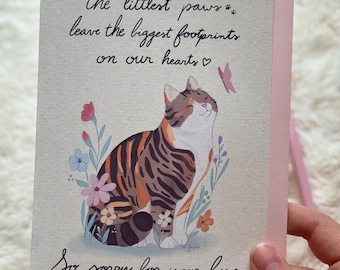 the littlest paws
leave the biggest footprints
on our hearts
So sorry for your loss